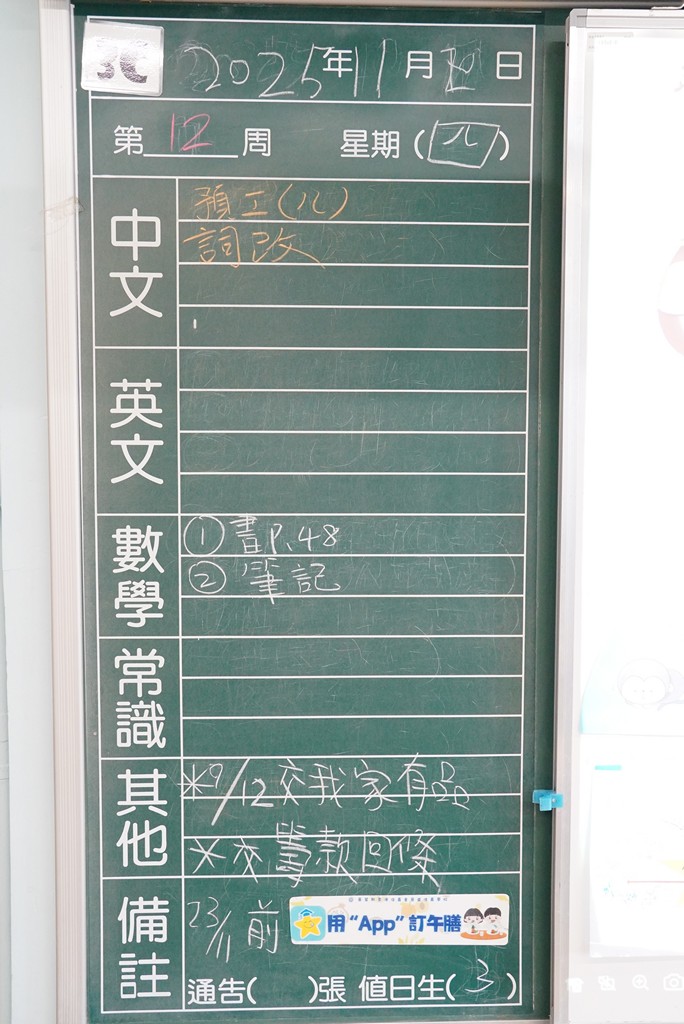 3C 2025年11月 日
第 12 周 星期( )
中文
預工(八)
詞改
英文
數學
① 書P.48
② 筆記
常識
其他
*9/12交我家有品
*交籌款回條
備註
23/11 前
用“App”訂午膳
通告( )張 值日生(3)